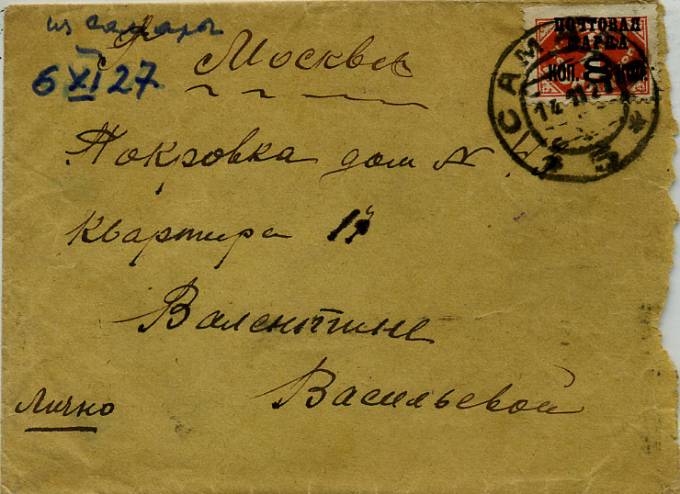 из Самары
6 XI 27
Москва
Покровка дом N
квартира 1
Валентине
Васильевой
Лично
ПОЧТОВАЯ
МАРКА
КОП. 8 КОП.
САМАРА
14 11 27